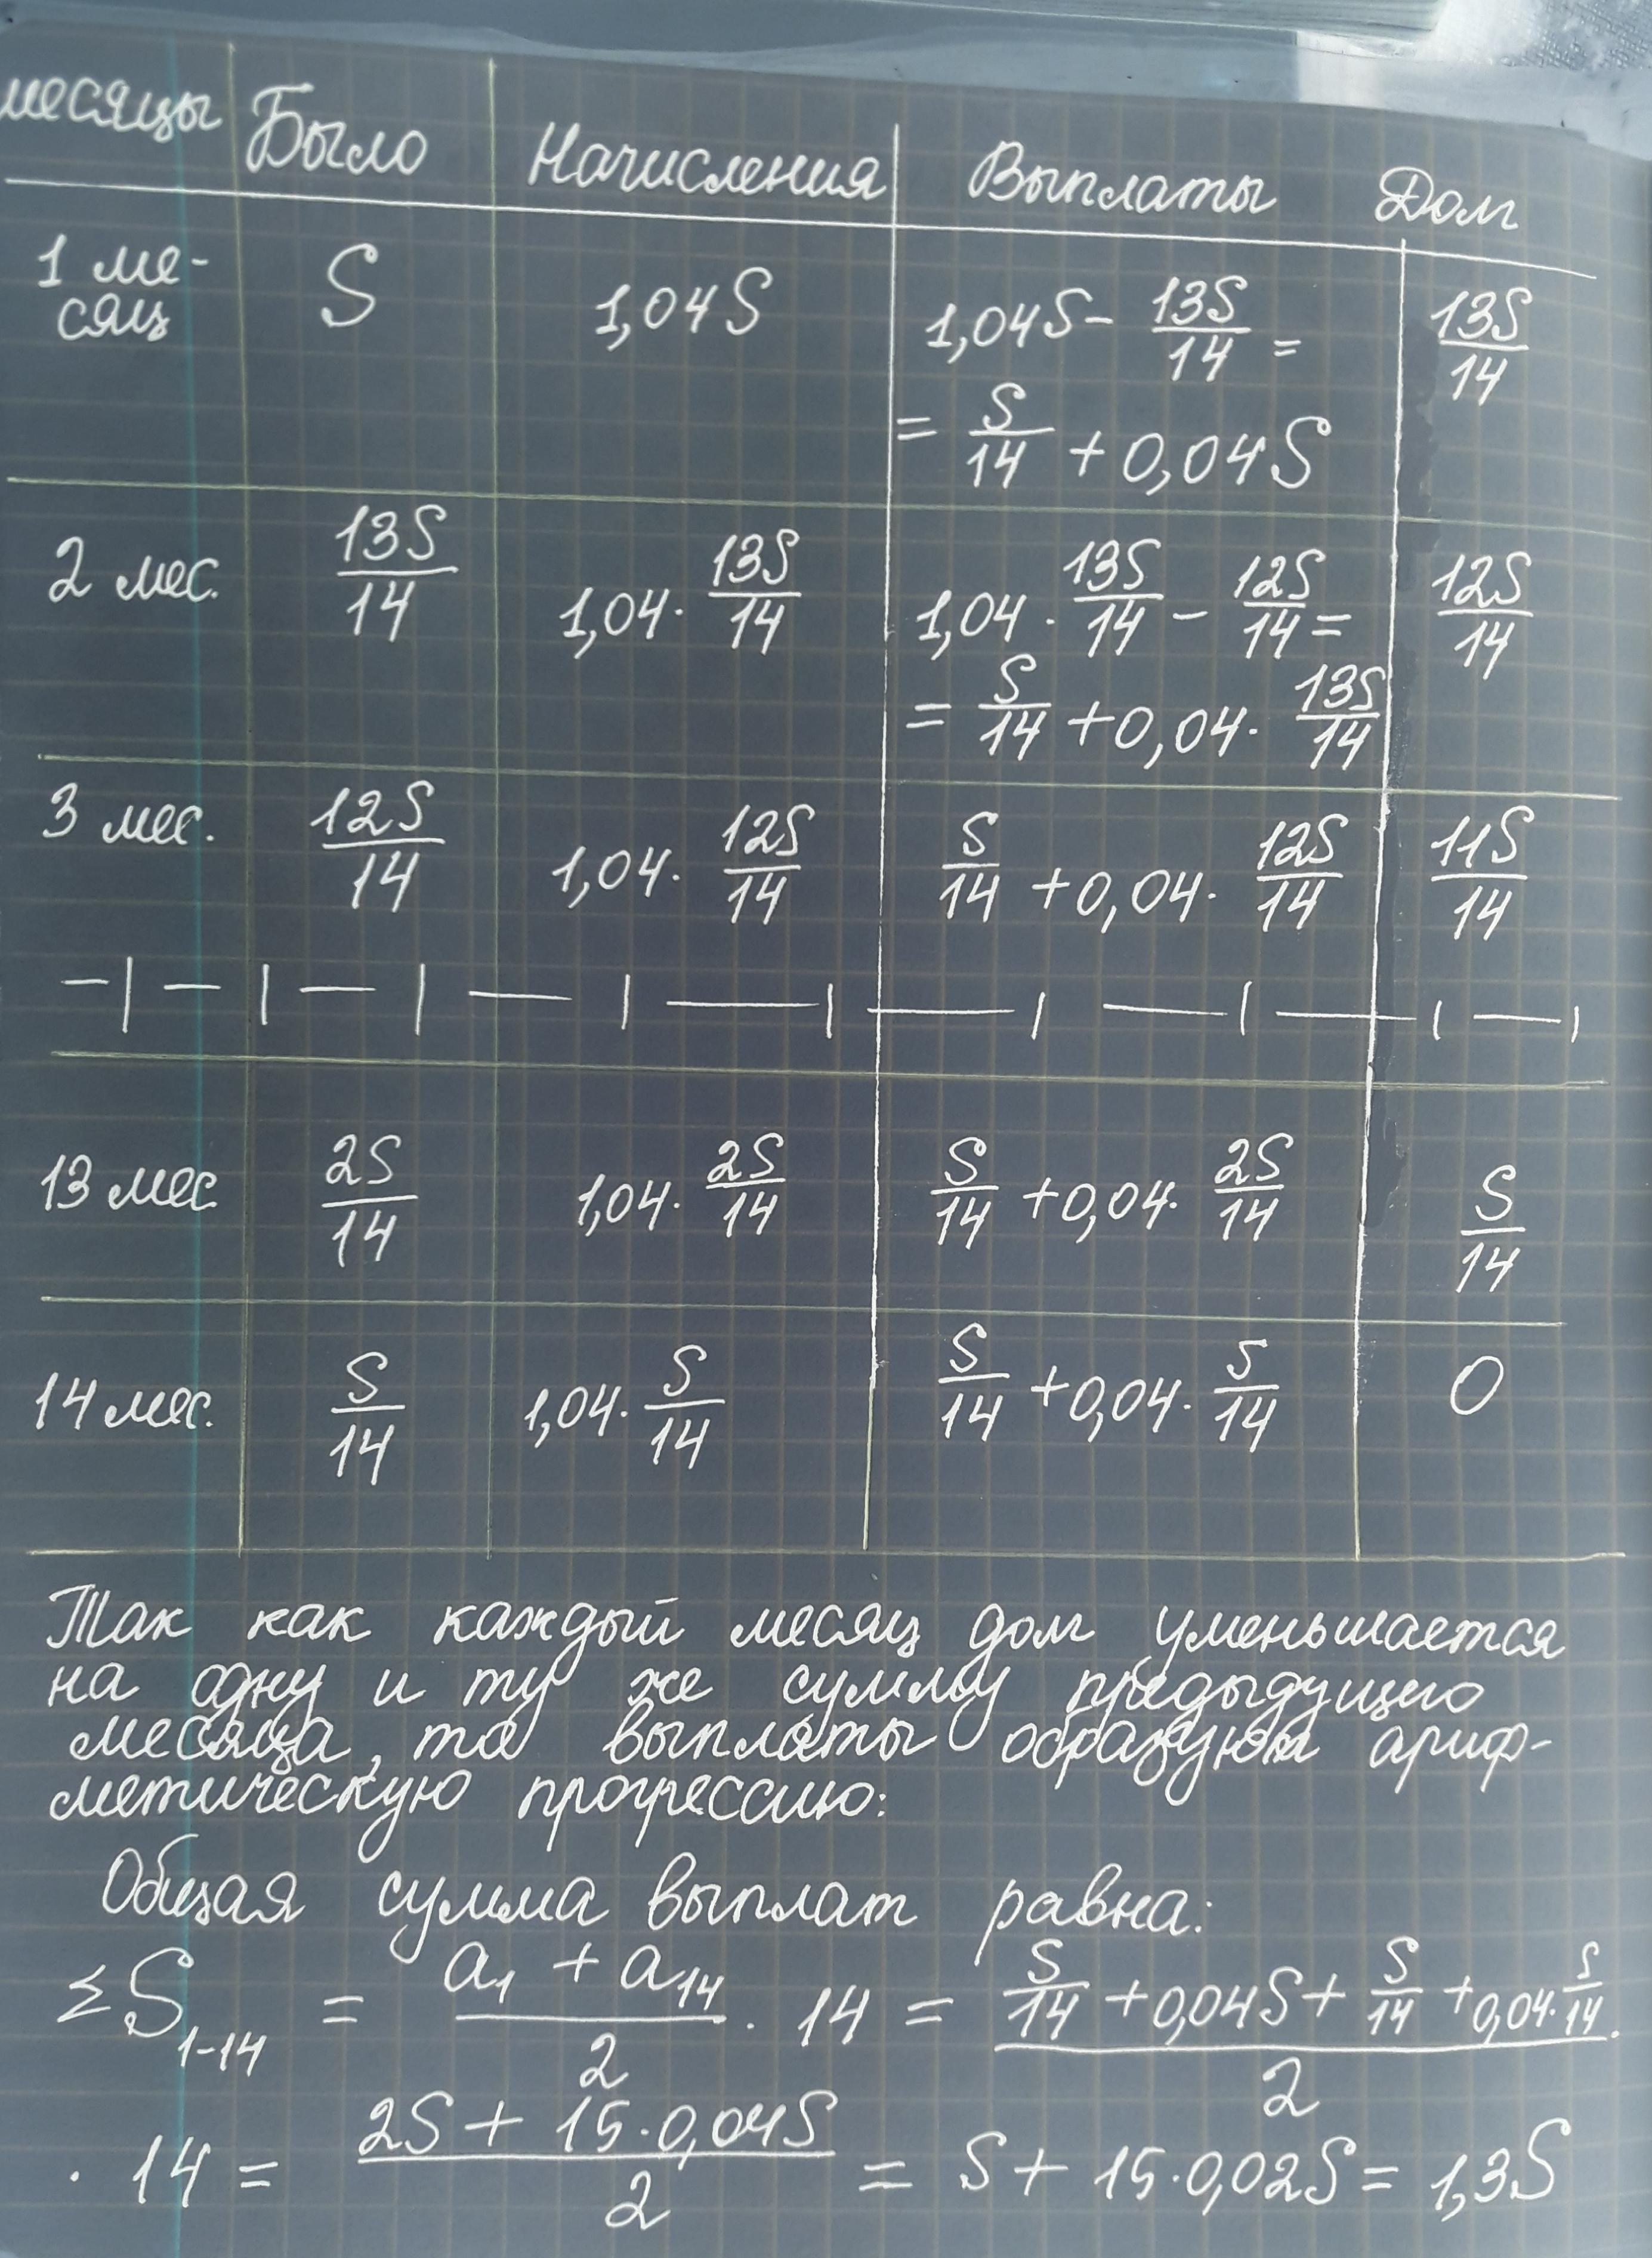 месяцы Было Начисления Выплаты Долг
1 ме-
сяц S 1,04S 1,04S - 13S/14 = 13S/14
= S/14 + 0,04S
2 мес. 13S/14 1,04 · 13S/14 1,04 · 13S/14 - 12S/14 = 12S/14
= S/14 + 0,04 · 13S/14
3 мес. 12S/14 1,04 · 12S/14 S/14 + 0,04 · 12S/14 11S/14
13 мес 2S/14 1,04 · 2S/14 S/14 + 0,04 · 2S/14 S/14
14 мес. S/14 1,04 · S/14 S/14 + 0,04 · S/14 0
Так как каждый месяц долг уменьшается
на одну и ту же сумму предыдущего
месяца, то выплаты образуют ариф-
метическую прогрессию:
Общая сумма выплат равна:
ΣS₁₋₁₄ = (a₁ + a₁₄)/2 · 14 = (S/14 + 0,04S + S/14 + 0,04 · S/14)/2 ·
· 14 = (2S + 15 · 0,04S)/2 = S + 15 · 0,02S = 1,3S